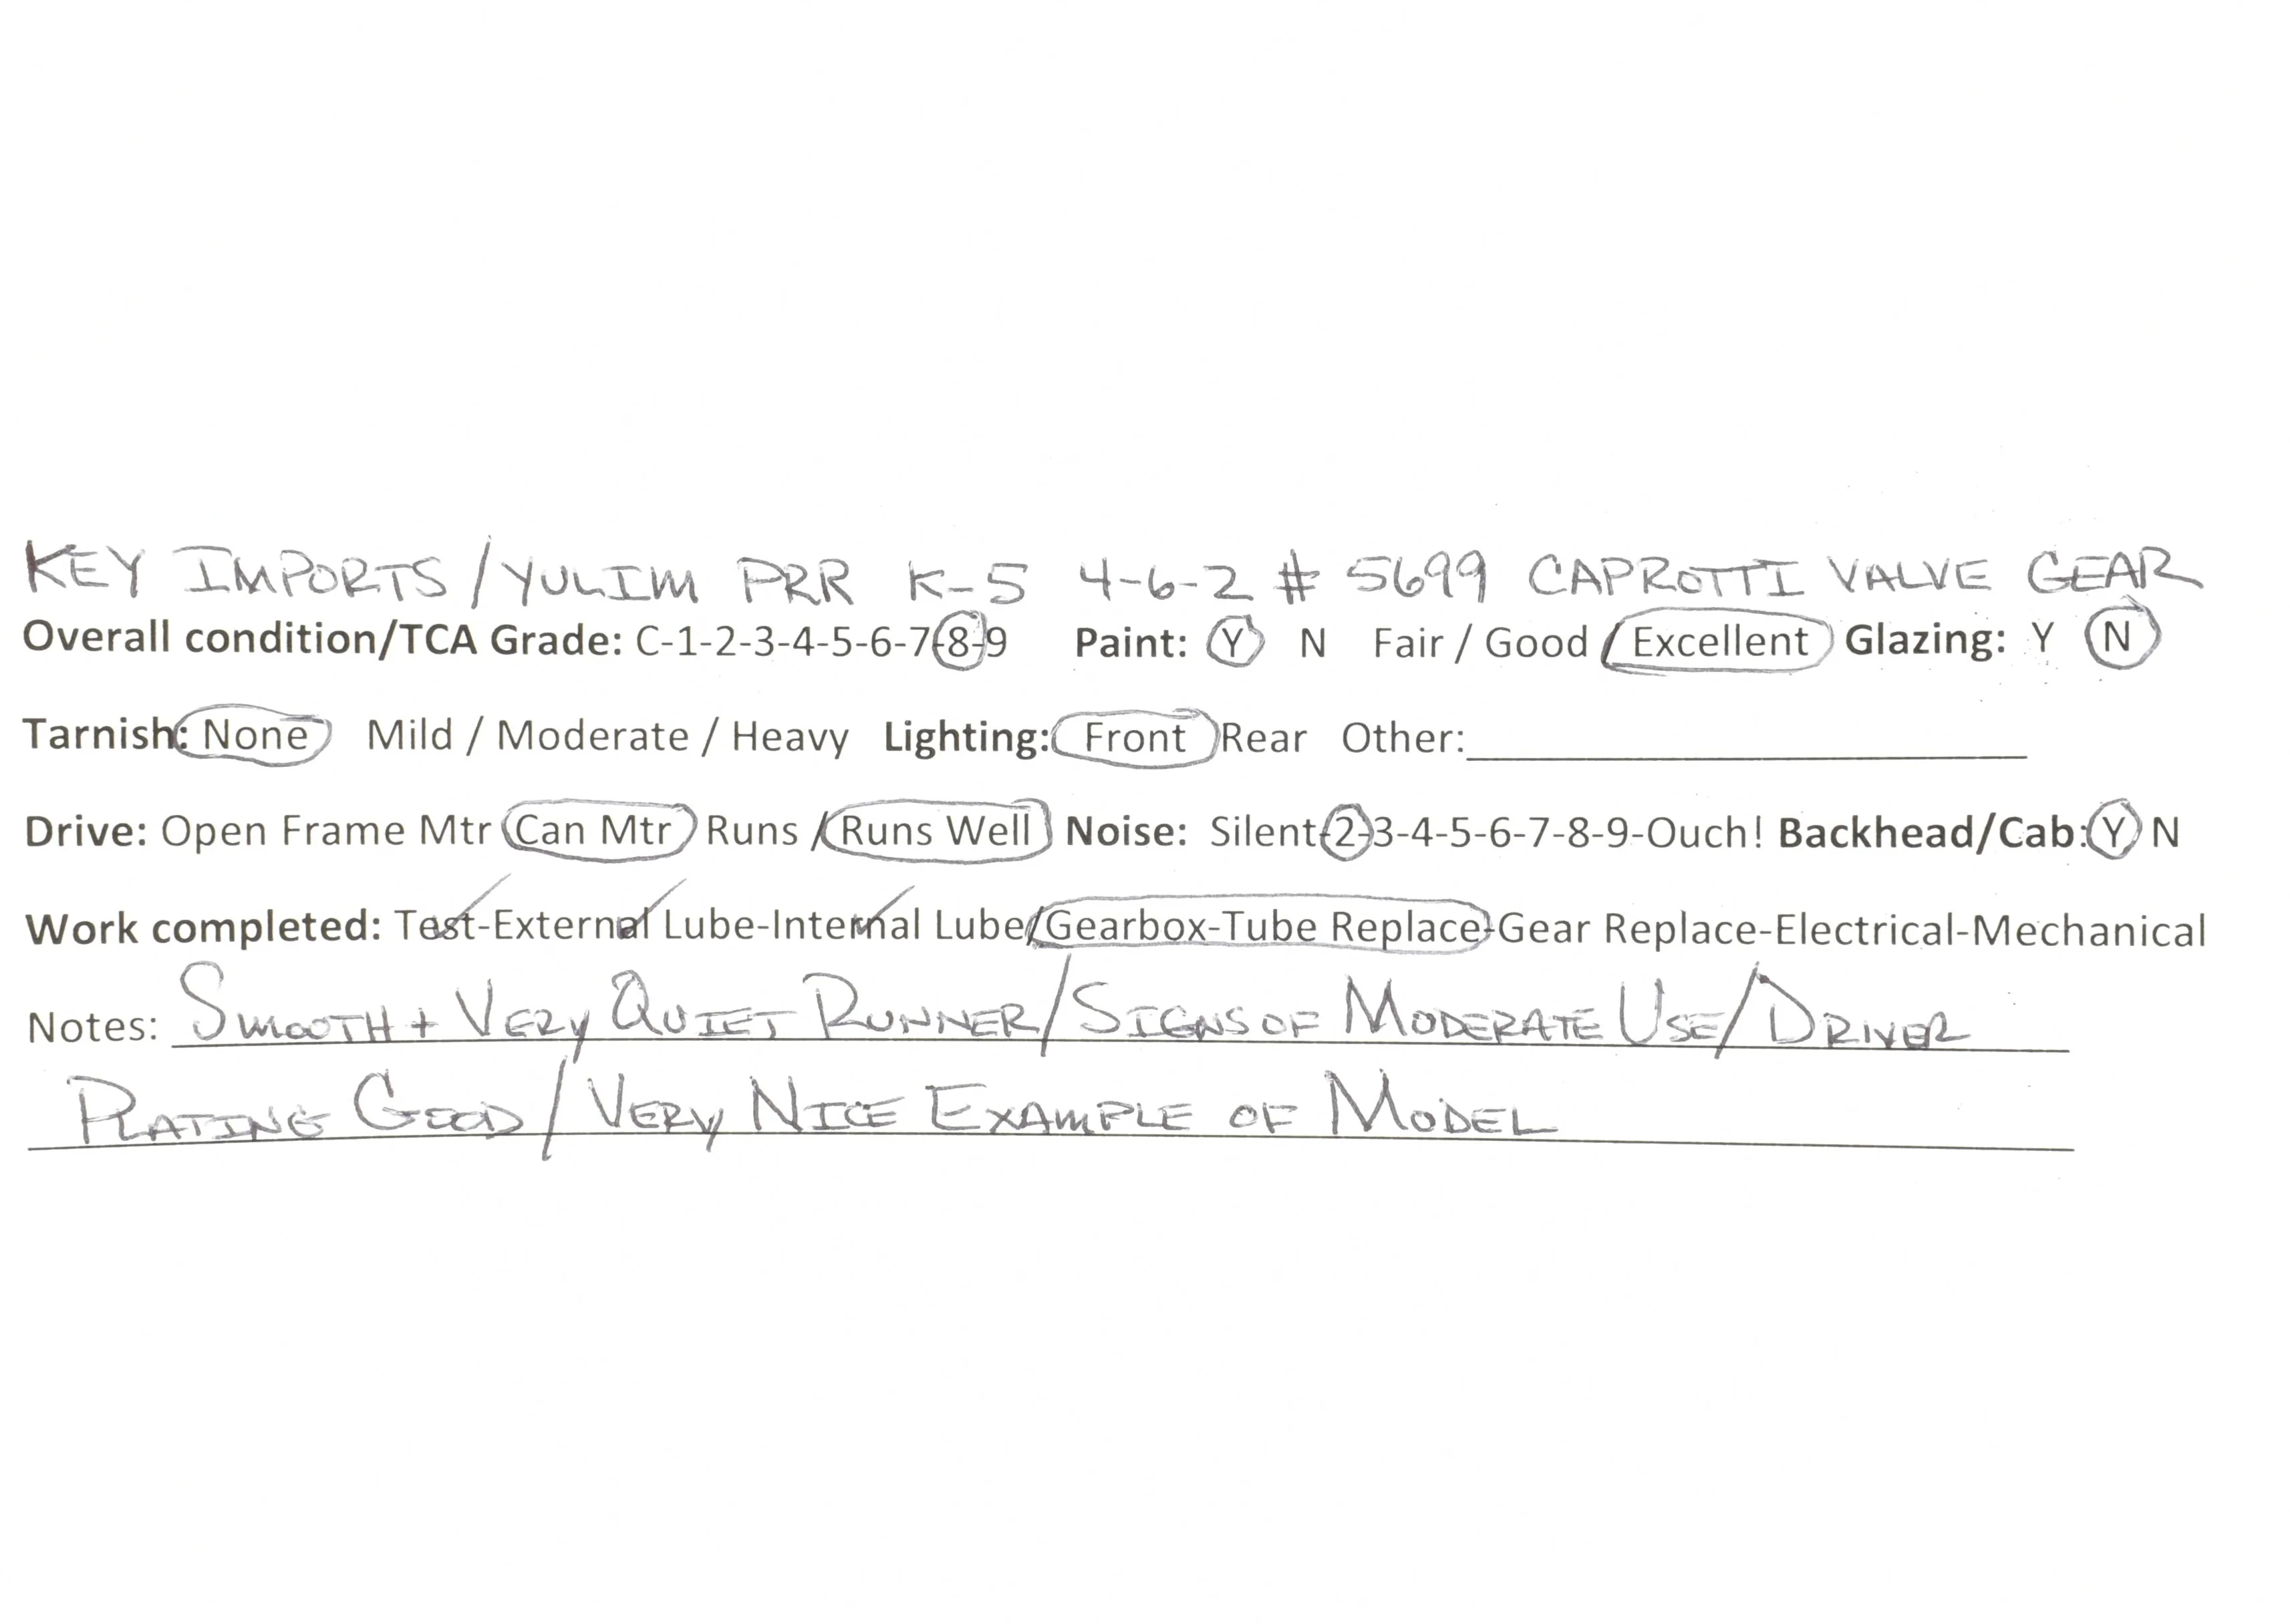 KEY IMPORTS/YULIM PRR K-5 4-6-2 # 5699 CAPROTTI VALVE GEAR
Overall condition/TCA Grade: C-1-2-3-4-5-6-7-8-9 Paint: Y N Fair / Good / Excellent Glazing: Y N
Tarnish: None Mild / Moderate / Heavy Lighting: Front Rear Other:
Drive: Open Frame Mtr Can Mtr Runs / Runs Well Noise: Silent-2-3-4-5-6-7-8-9-Ouch! Backhead/Cab: Y N
Work completed: Test-External Lube-Internal Lube/Gearbox-Tube Replace-Gear Replace-Electrical-Mechanical
Notes: SMOOTH + VERY QUIET RUNNER/SIGNS OF MODERATE USE/DRIVER
PLATING GOOD/VERY NICE EXAMPLE OF MODEL